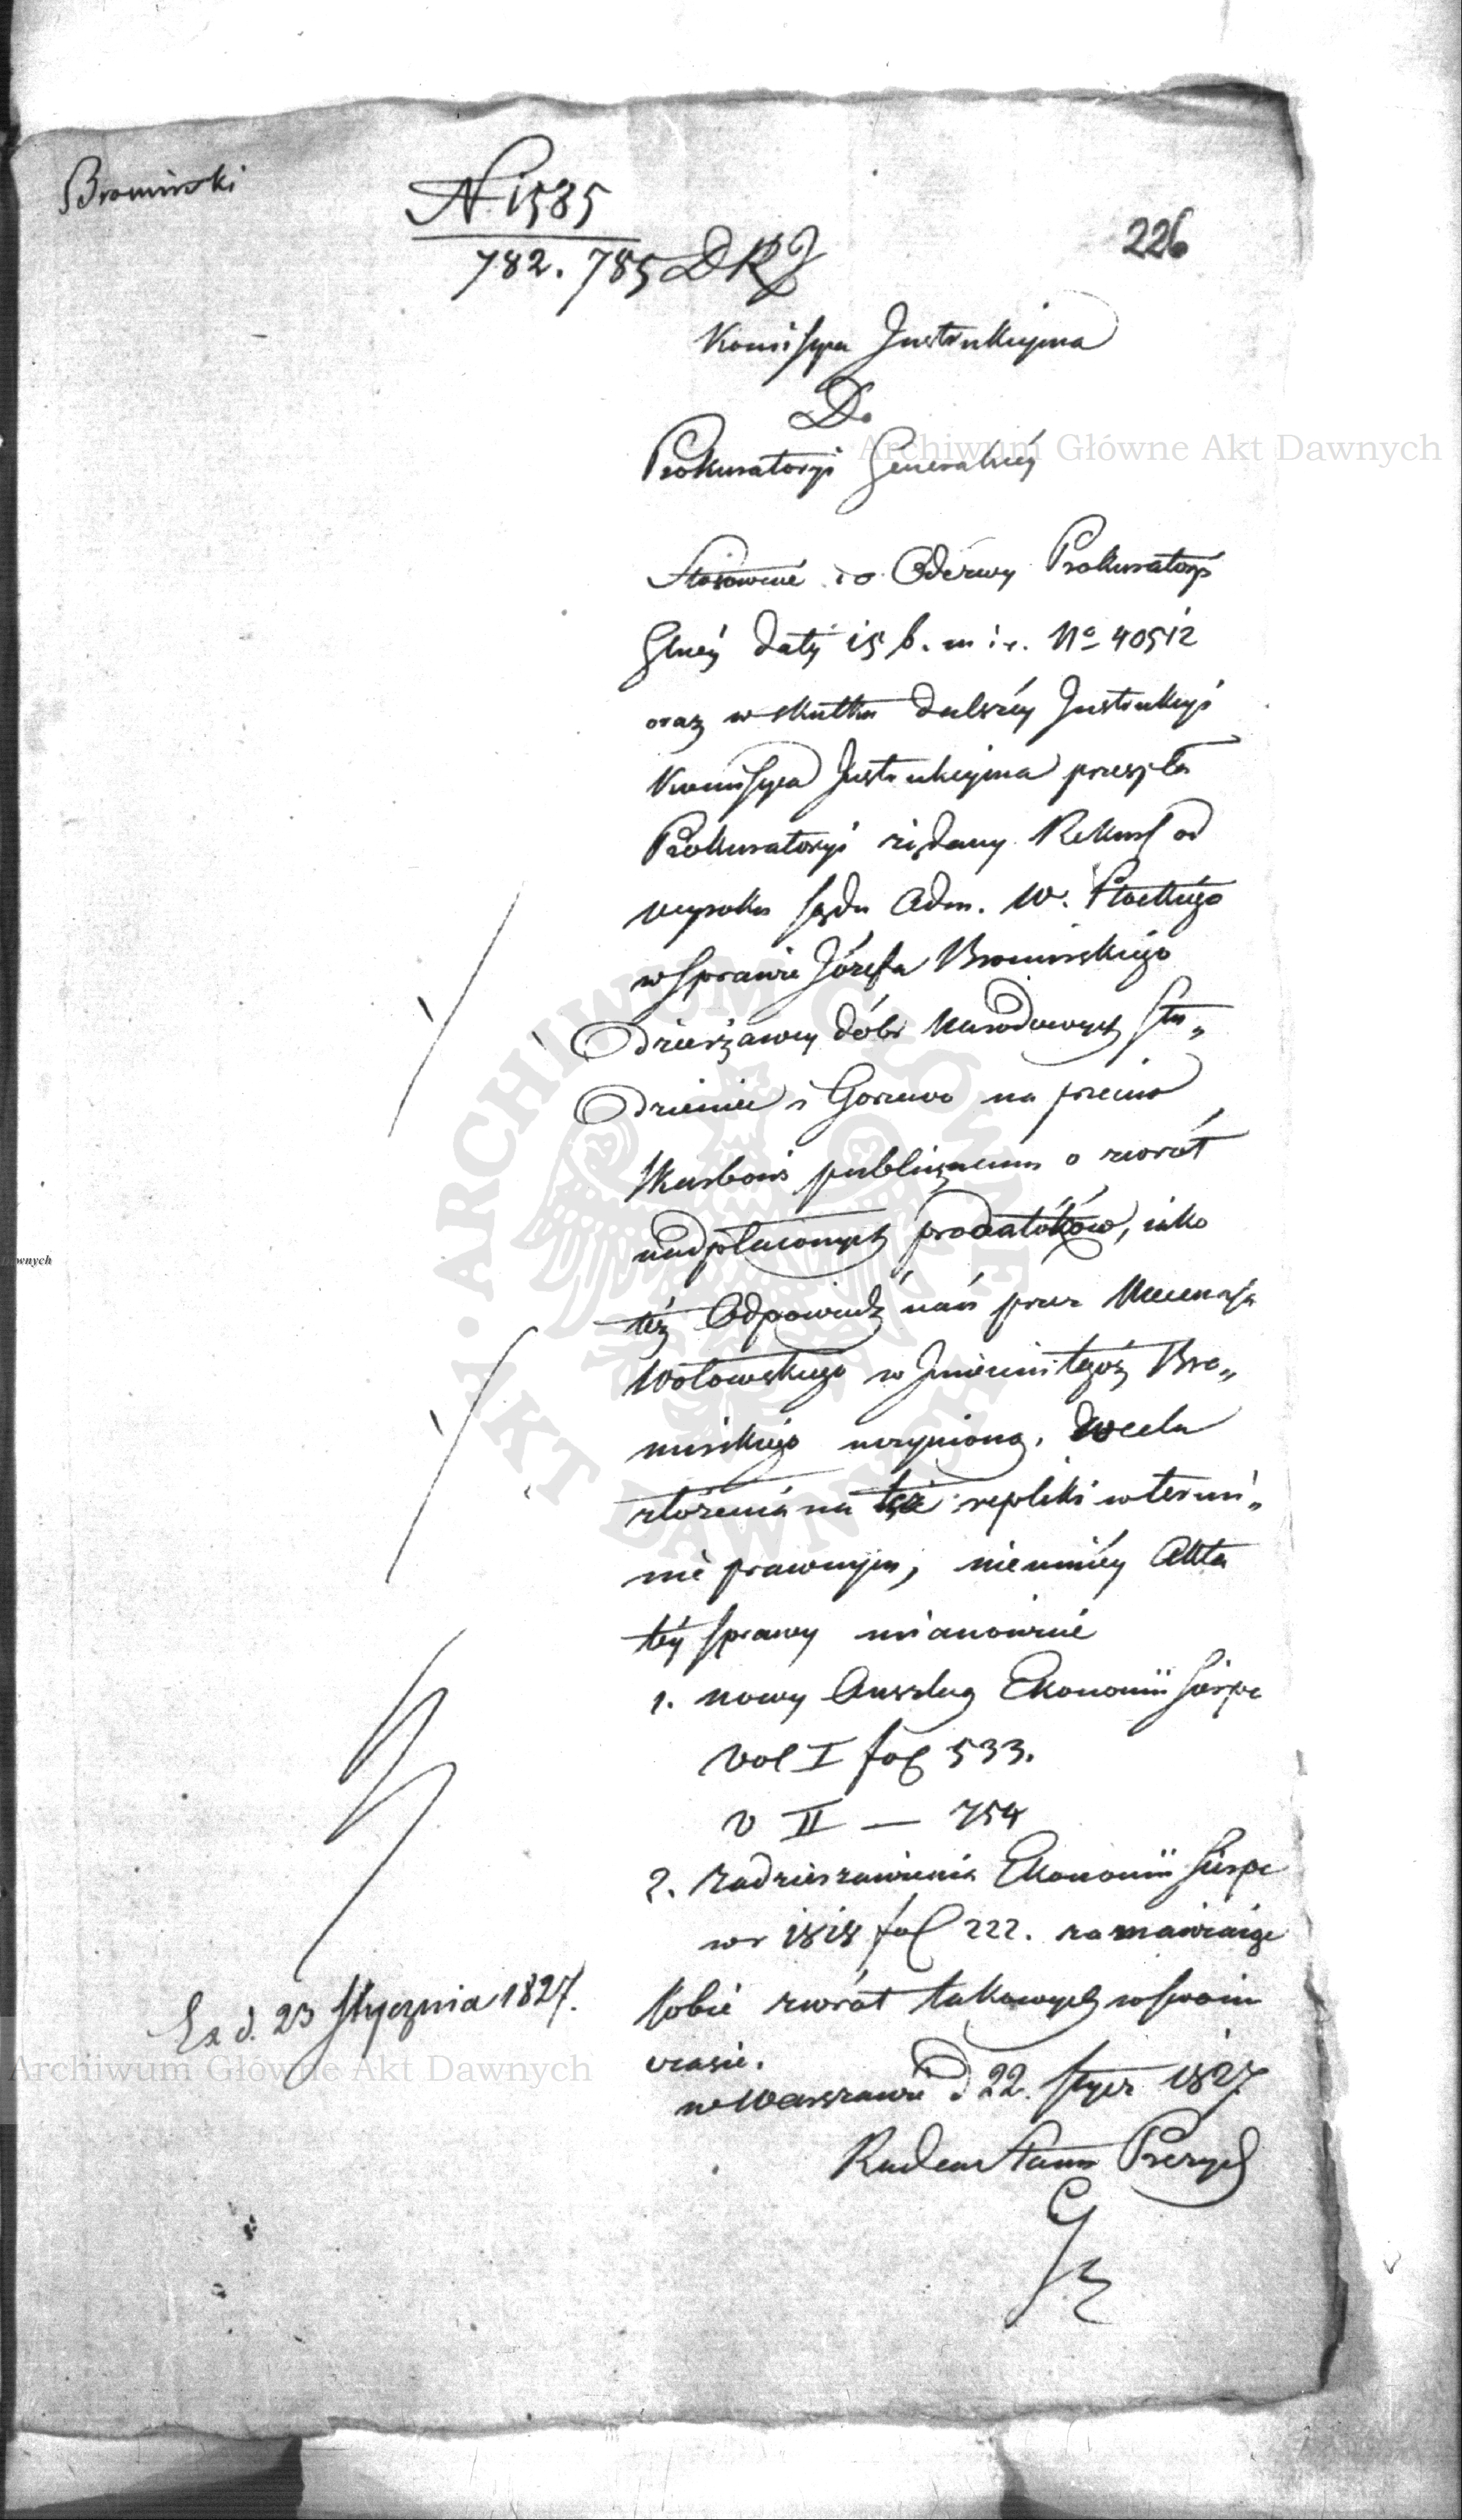 Bromirski
N. 1585
782. 785 DKJ
226
Komissya Instrukcyina
Do
Prokuratoryi Generalnéy
Stosownie do Odezwy Prokuratoryi
Glnéy daty 15 b. m i r. No 40512
oraz w skutku dalszéy Instrukcyi
Komissya Instrukcyina przesyła
Prokuratoryi żądany Rekurs od
wyroku Sądu Adm. W. Płockiego
w Sprawie Józefa Bromirskiego
Dzierżawcy dóbr Narodowych Stu„
dzieniec i Gorzewo na przeciw
Skarbowi publicznemu o zwrót
nadpłaconych podatków, iako
też Odpowiedź nań przez Mecenasa
Wołowskiego w Imieniu tegóż Bro„
mirskiego uczynioną, w celu
złożenia na też repliki w termi„
nie prawnym, niemniéy Akta
téy Sprawy mianowicie
1. nowy Anszlag Ekonomii Sierpc
vol I fol 533.
v II — 754
2. zadzierżawienia Ekonomii Sierpc
w r 1818 fol 222. zamawiaiąc
sobie zwrót takowych w swoim
czasie.
w Warszawie d 22. Stycz 1827
Radca Stanu Prezyd
Ex d. 23 Stycznia 1827.
Archiwum Główne Akt Dawnych
Archiwum Główne Akt Dawnych
ARCHIWUM GŁÓWNE AKT DAWNYCH